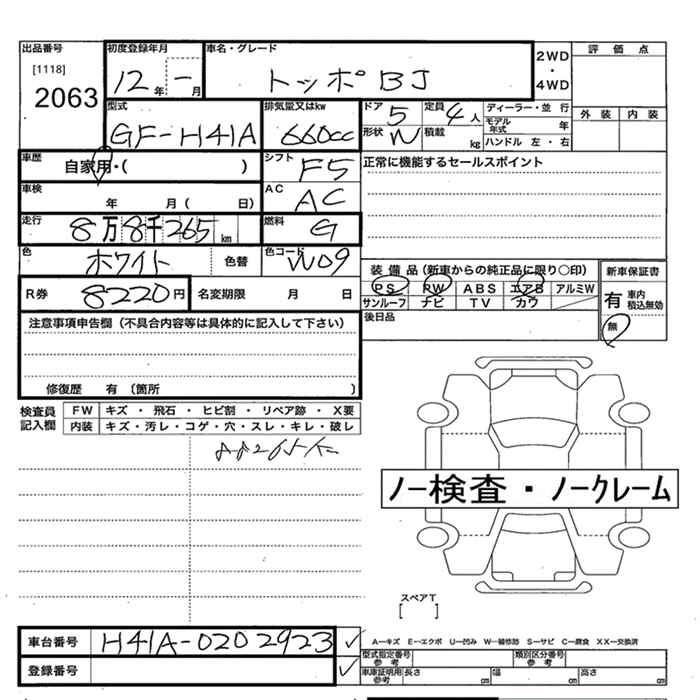 出品番号 初度登録年月 車名・グレード 評価点
[1118] 2WD
2063 12年 - 月 トッポBJ ・
4WD
型式 排気量又はkw ドア 5 定員 4人 ディーラー・並行 外装 内装
GF-H41A 660cc 形状 W 積載 kg モデル年式 年
ハンドル 左・右
車歴 自家用・( ) シフト F5 正常に機能するセールスポイント
車検 年 月( 日) AC AC
走行 8万8千265km 燃料 G
色 ホワイト 色替 色コード W09
装備品(新車からの純正品に限り○印) 新車保証書
R券 8220円 名変期限 月 日 PS PW ABS エアB アルミW 有 車内積込無効
サンルーフ ナビ TV カワ 無
注意事項申告欄(不具合内容等は具体的に記入して下さい) 後日品
修復歴 有 〔箇所 〕
検査員記入欄 FW キズ・飛石・ヒビ割・リペア跡・X要
内装 キズ・汚レ・コゲ・穴・スレ・キレ・破レ
ノー検査・ノークレーム
スペアT
[ ]
車台番号 H41A-0202923 A-キズ E-エクボ U-凹み W-補修跡 S-サビ C-腐食 XX-交換済
型式指定番号 参考 類別区分番号 参考
登録番号 車庫証明用参考 長さ cm 幅 cm 高さ cm